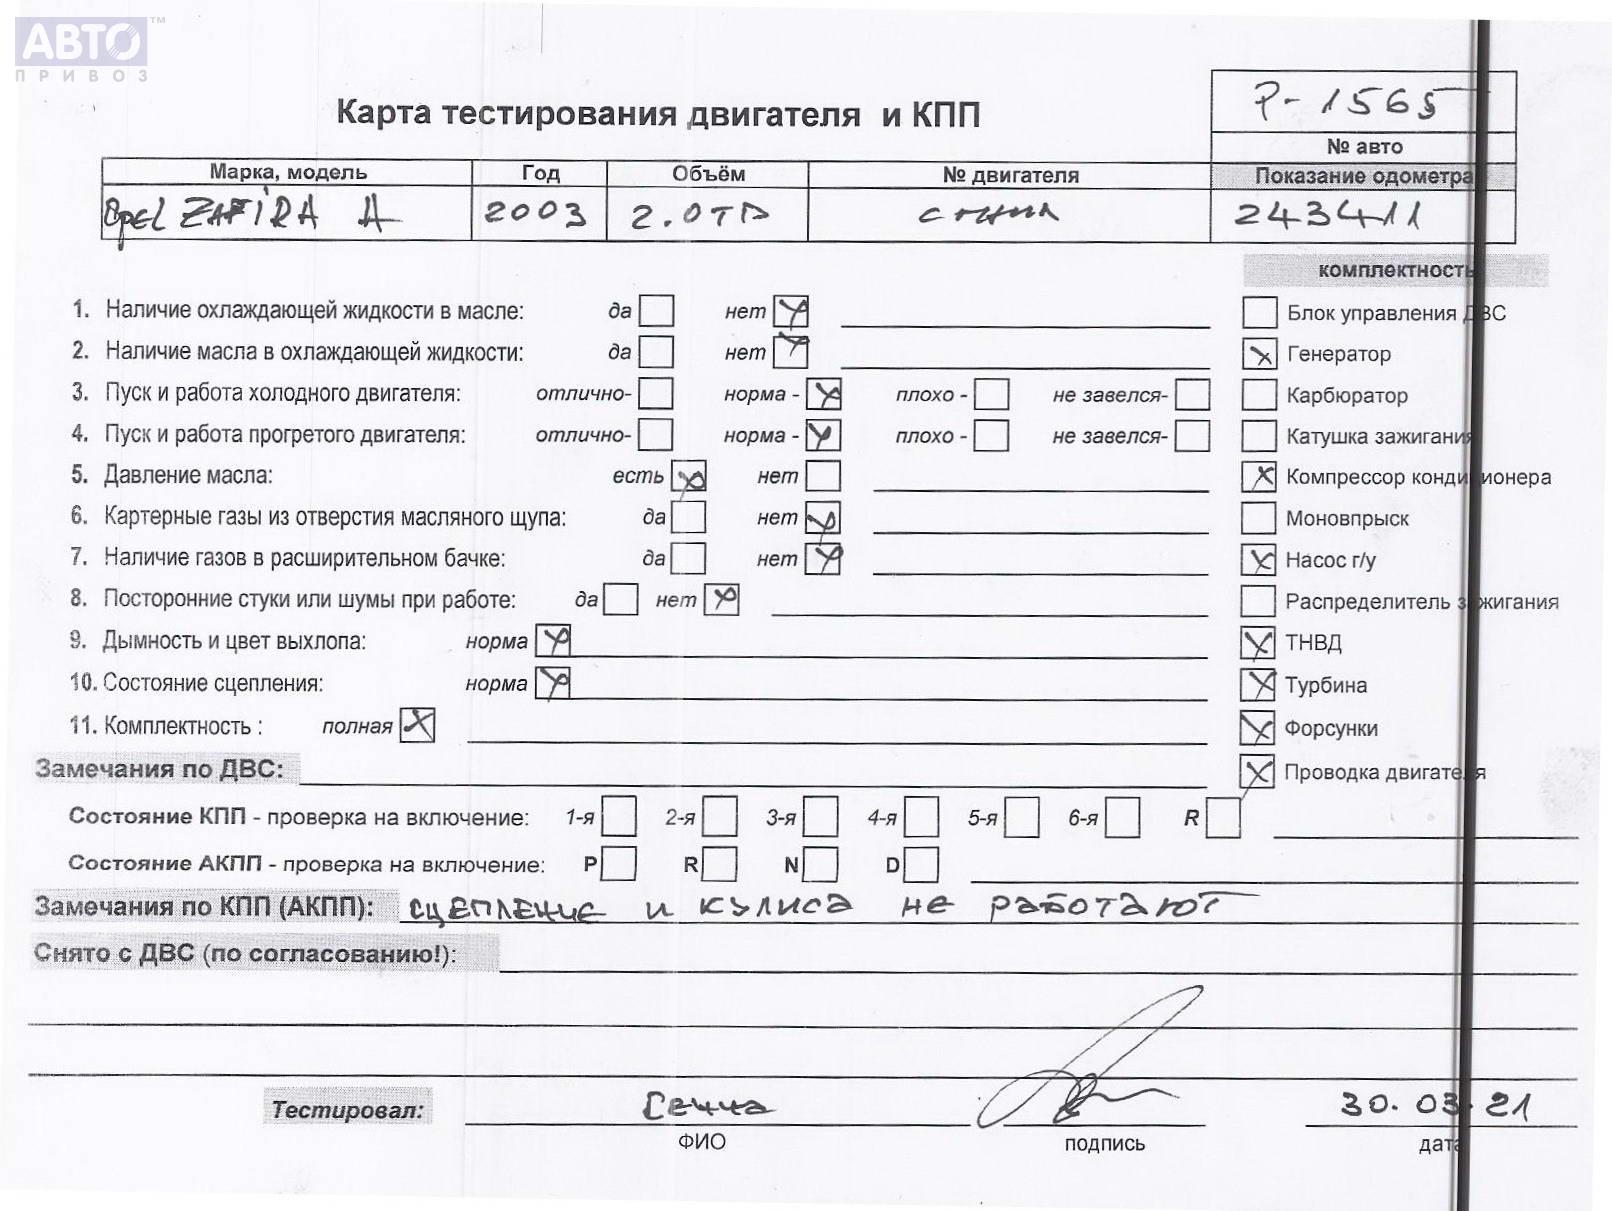 АВТО™
ПРИВОЗ
Карта тестирования двигателя и КПП
P-1565
№ авто
Марка, модель Год Объём № двигателя Показание одометра
Opel ZAFIRA A 2003 2.0TD 243411
комплектность
1. Наличие охлаждающей жидкости в масле: да нет
Блок управления ДВС
2. Наличие масла в охлаждающей жидкости: да нет
Генератор
3. Пуск и работа холодного двигателя: отлично- норма - плохо - не завелся-
Карбюратор
4. Пуск и работа прогретого двигателя: отлично- норма - плохо - не завелся-
Катушка зажигания
5. Давление масла: есть нет
Компрессор кондиционера
6. Картерные газы из отверстия масляного щупа: да нет
Моновпрыск
7. Наличие газов в расширительном бачке: да нет
Насос г/у
8. Посторонние стуки или шумы при работе: да нет
Распределитель зажигания
9. Дымность и цвет выхлопа: норма
ТНВД
10. Состояние сцепления: норма
Турбина
11. Комплектность : полная
Форсунки
Замечания по ДВС:
Проводка двигателя
Состояние КПП - проверка на включение: 1-я 2-я 3-я 4-я 5-я 6-я R
Состояние АКПП - проверка на включение: P R N D
Замечания по КПП (АКПП): сцепление и кулиса не работают
Снято с ДВС (по согласованию!):
Тестировал: 30.03.21
ФИО подпись дата